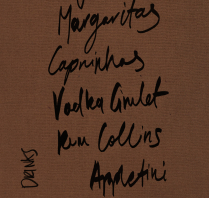 Margaritas
Caprinhas
Vodka Gimlet
Rum Collins
Appletini
Drinks